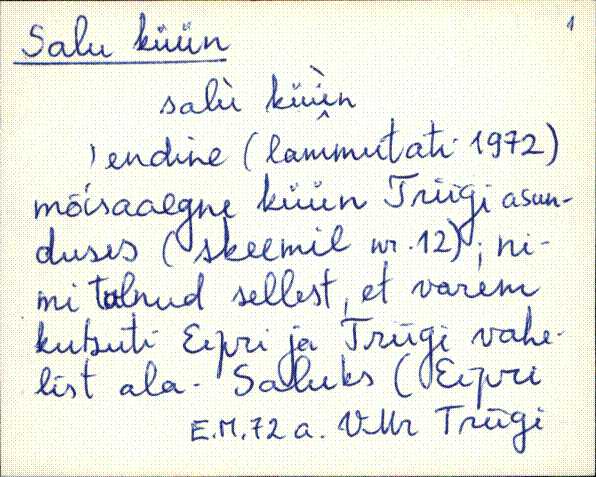 1
Salu küün
salù küù̬n
, endine (lammutati 1972)
mõisaaegne küün Triigi asun-
duses (skeemil nr. 12), ni-
mi tulnud sellest, et varem
kutsuti Eipri ja Triigi vahe-
list ala - Saluks (Eipri
E.M. 72 a. V.Mr Triigi